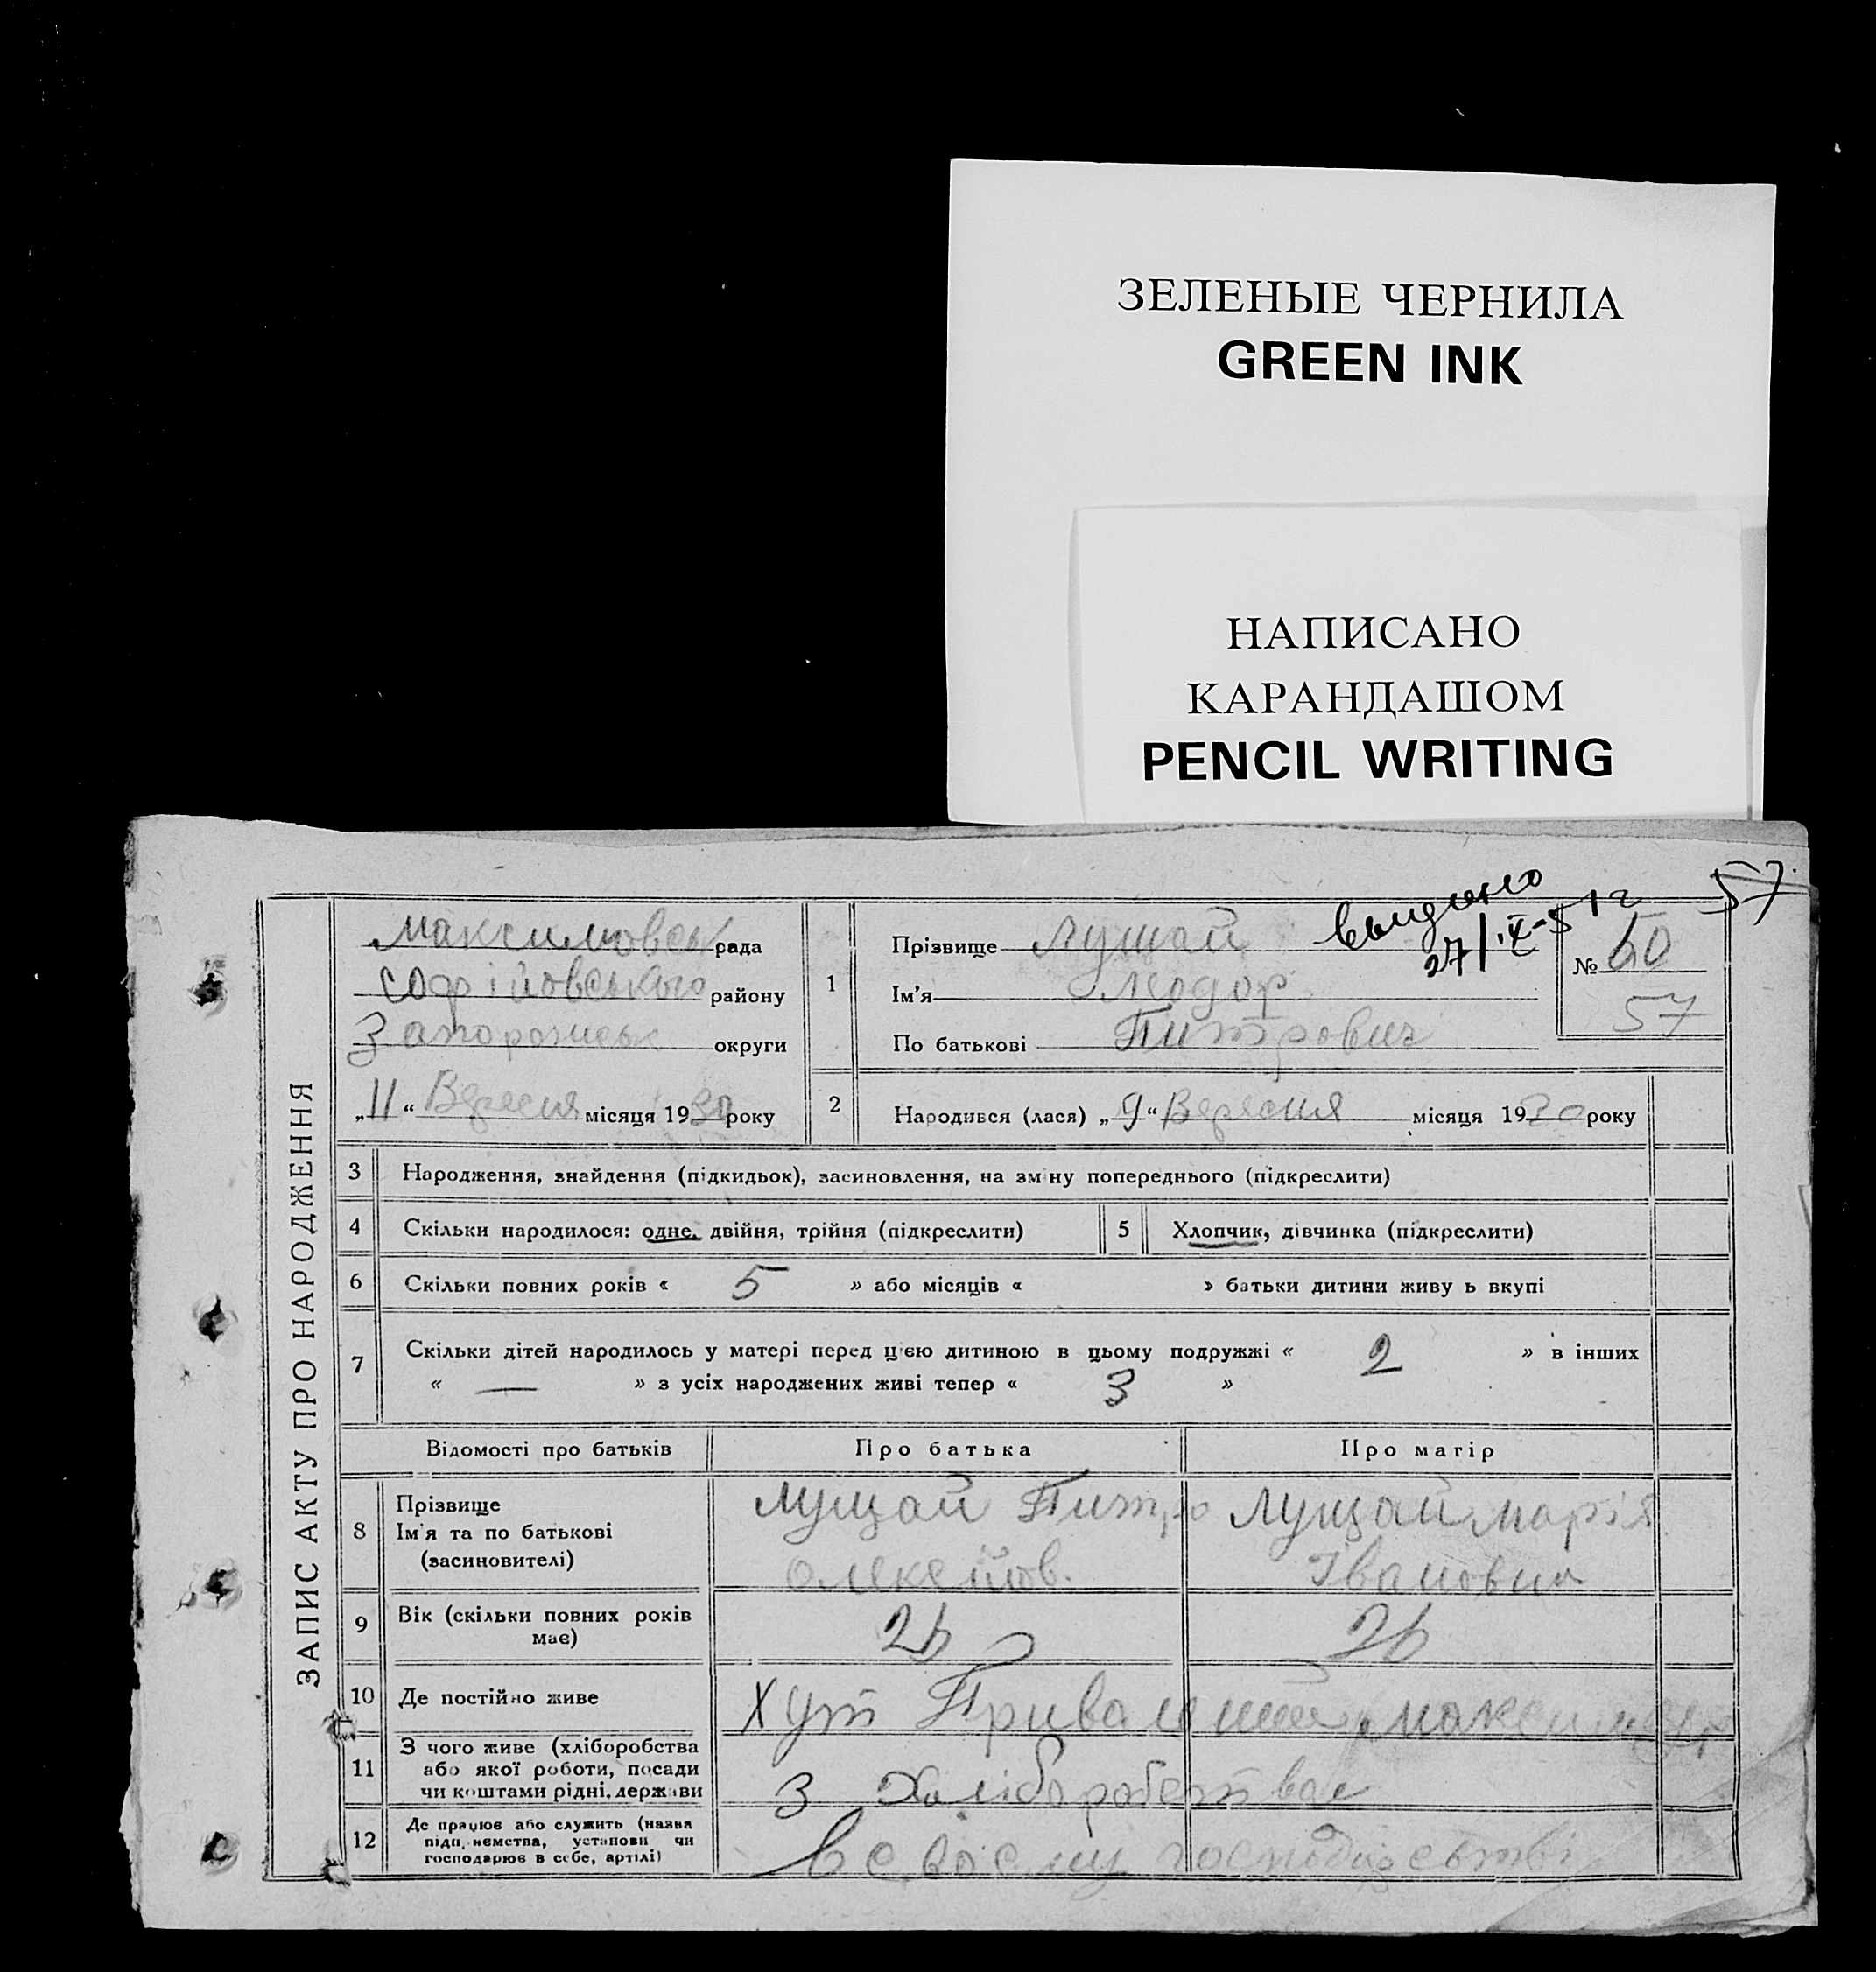 ЗЕЛЕНЫЕ ЧЕРНИЛА
GREEN INK
НАПИСАНО
КАРАНДАШОМ
PENCIL WRITING
57
выдано
27/IX-51г
ЗАПИС АКТУ ПРО НАРОДЖЕННЯ
Максимовськ рада
Софійовського району
Запорозськ округи
„11“ Вересня місяця 1930 року
1
Прізвище Лущай
Ім'я
По батькові Питрович
№ 50
57
2 Народився (лася) „9“ Вересня місяця 1930 року
3 Народження, знайдення (підкидьок), засиновлення, на зміну попереднього (підкреслити)
4 Скільки народилося: одне, двійня, трійня (підкреслити) 5 Хлопчик, дівчинка (підкреслити)
6 Скільки повних років « 5 » або місяців « » батьки дитини живу ь вкупі
7 Скільки дітей народилось у матері перед цією дитиною в цьому подружжі « 2 » в інших
« — » з усіх народжених живі тепер « 3 »
Відомості про батьків Про батька Про матір
8 Прізвище
Ім'я та по батькові
(засиновителі)
Лущай Питро
Олексійов.
Лущай Марія
Івановна
9 Вік (скільки повних років
має)
26 26
10 Де постійно живе Хут
11 З чого живе (хліборобства
або якої роботи, посади
чи коштами рідні, держави
З
12 Де працює або служить (назва
підп,иємства, установи чи
господарює в себе, артілі)
В своєму